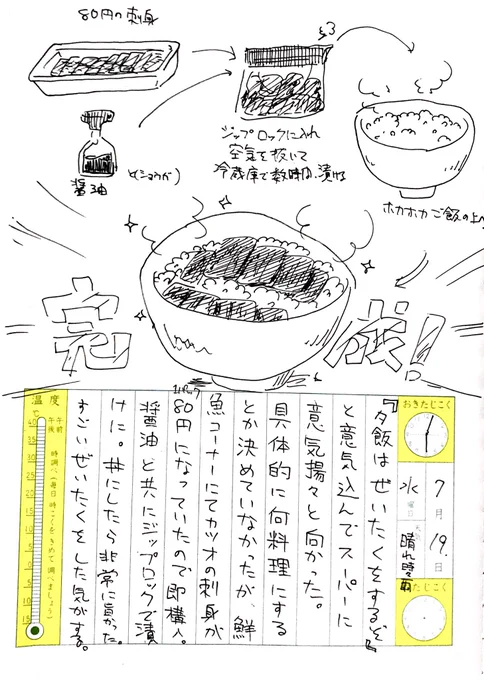 80円の刺身
醤油
(ショウガ)
ジップロックに入れ
空気を抜いて
冷蔵庫で数時間漬ける
ホカホカご飯の上へ
完成!
おきたじこく
7月19日
水曜日
天気
晴れ時々雨
ねたじこく
『夕飯はぜいたくをするぞ』
と意気込んでスーパーに
意気揚々と向かった。
具体的に何料理にする
とか決めていなかったが、鮮
魚コーナーにてカツオの刺身が
1パック
80円になっていたので即購入。
醤油と共にジップロックで漬
けに。丼にしたら非常に旨かった。
すごいぜいたくをした気がする。
温度
℃
午前
午後
時調べ(毎日時こくをきめて調べましょう)
40
35
30
25
20
15
10
5
0
5
10
15